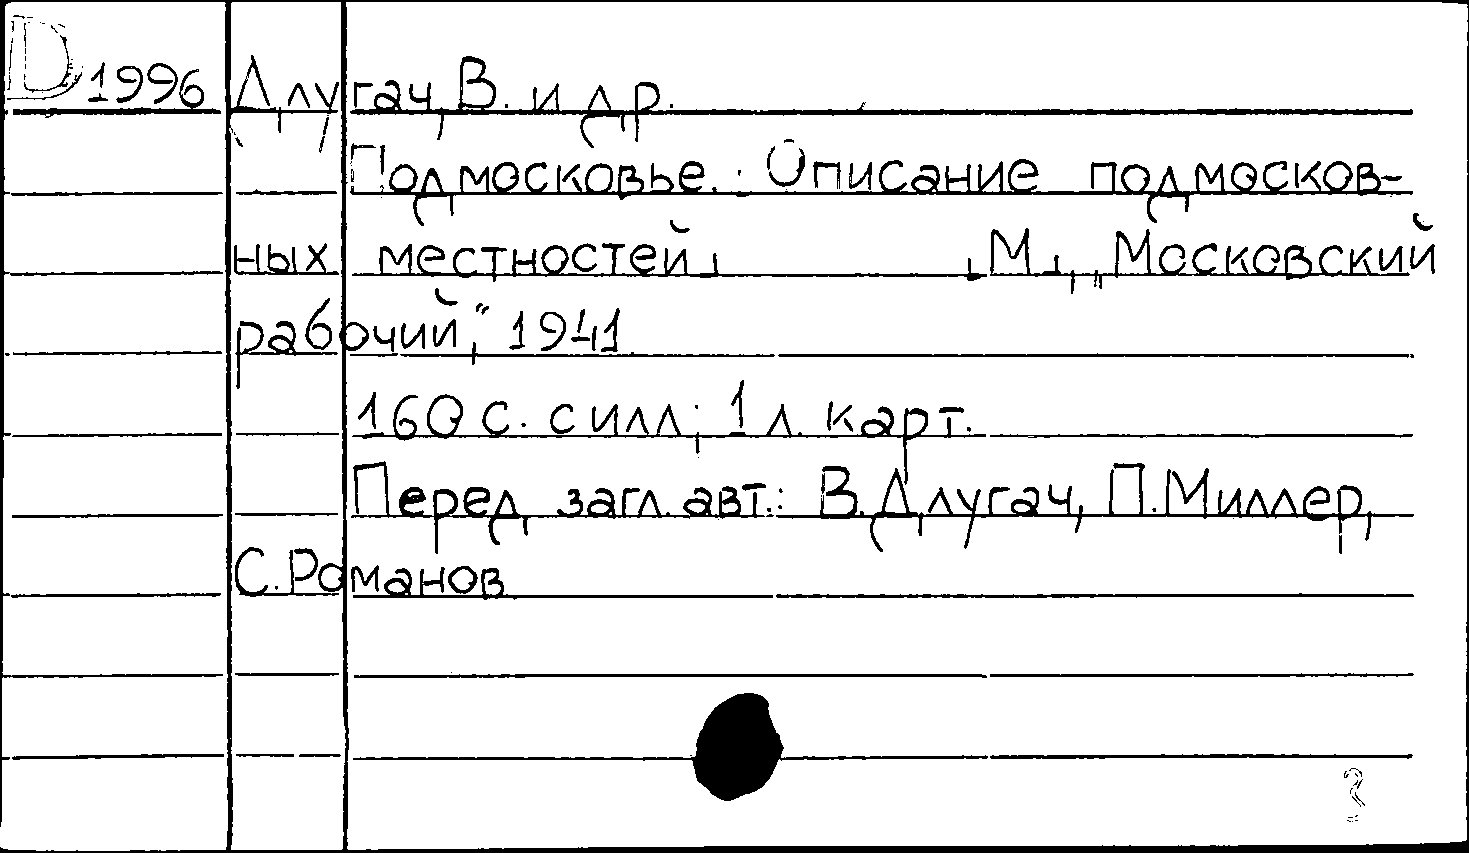 D 1996 Длугач, В. и др.
Подмосковье. Описание подмосков-
ных местностей. М., „Московский
рабочий," 1941
160 с. с илл; 1 л. карт.
Перед загл. авт.: В. Длугач, П. Миллер,
С. Романов
?